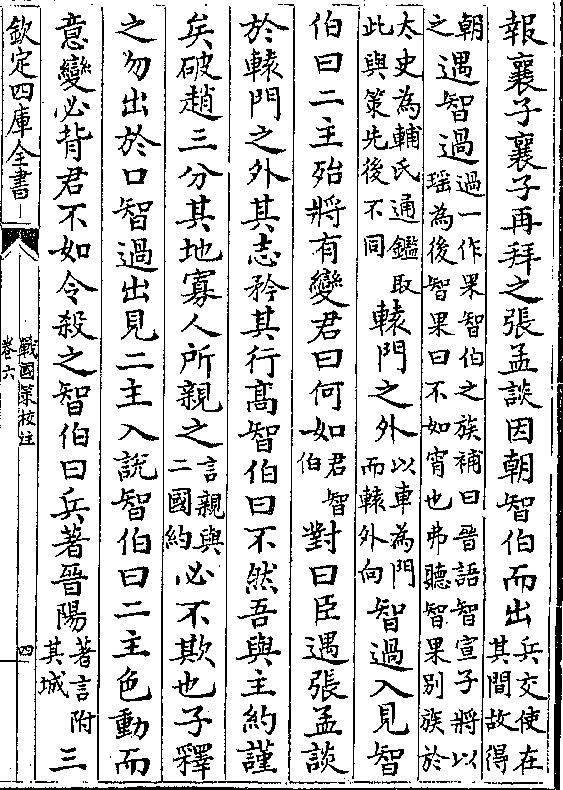 報襄子襄子再拜之張孟談因朝智伯而出兵交使在其間故得
朝之遇智過過一作果智伯之族補曰晉語智宣子將以瑶為後智果曰不如宵也弗聽智果別族於
太史為輔氏通鑑取此與策先後不同轅門之外以車為門而轅外向智過入見智
伯曰二主殆將有變君曰何如君智伯對曰臣遇張孟談
於轅門之外其志矜其行髙智伯曰不然吾與主約謹
矣破趙三分其地寡人所親之言親與二國約必不欺也子釋
之勿出於口智過出見二主入說智伯曰二主色動而
意變必背君不如令殺之智伯曰兵著晉陽著言附其城三
欽定四庫全書
戰國策校注
卷六
四